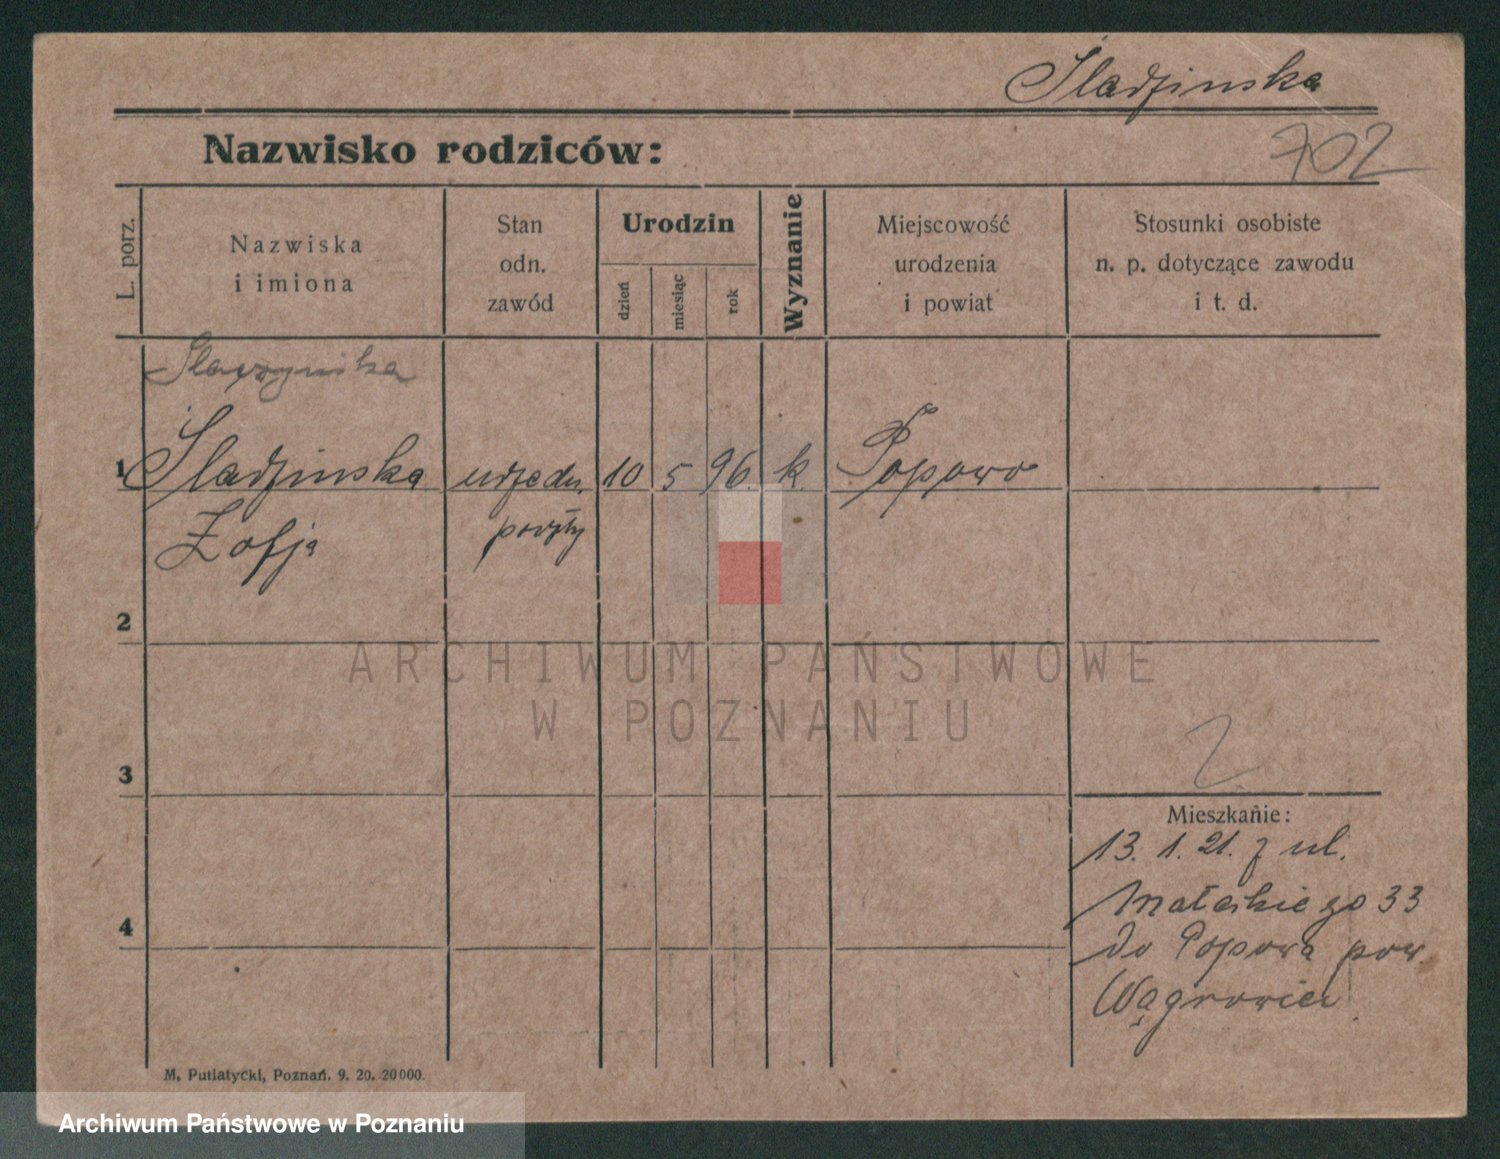 Śladzinska
702
Nazwisko rodziców:
L. porz.
Nazwiska
i imiona
Stan
odn.
zawód
Urodzin
dzień
miesiąc
rok
Wyznanie
Miejscowość
urodzenia
i powiat
Stosunki osobiste
n. p. dotyczące zawodu
i t. d.
1 Śladzinska urzedn. 10 5 96 k. Popowo
Zofja poczty
2
3
4
Mieszkanie:
13. 1. 21. z ul.
Małeckiego 33
do Popowa pow.
Wągrowiec
M. Putiatycki, Poznań. 9. 20. 20000.
ARCHIWUM PAŃSTWOWE
W POZNANIU
Archiwum Państwowe w Poznaniu